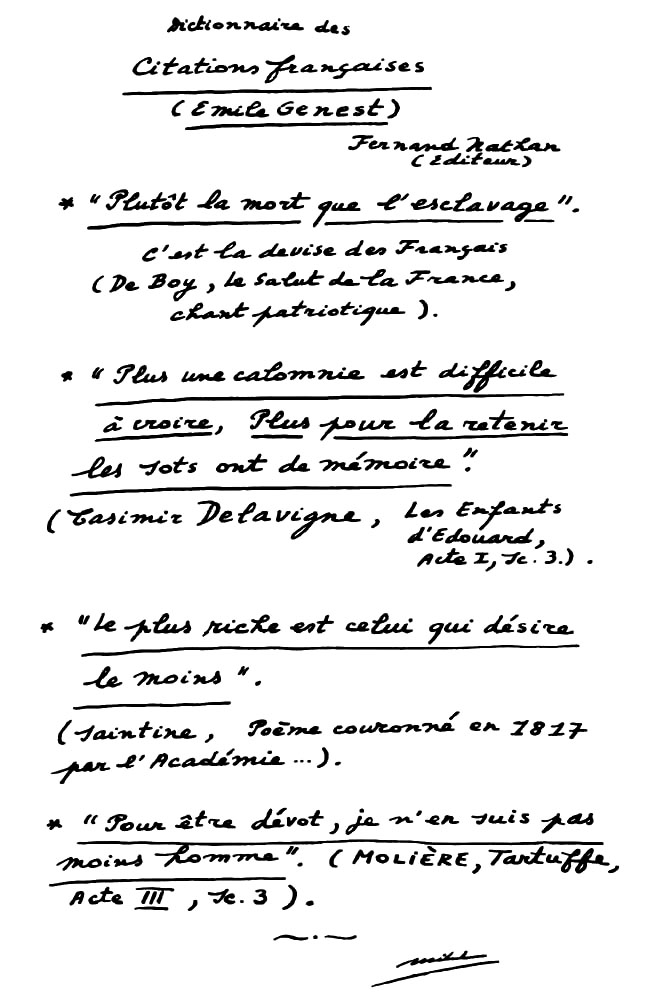 Dictionnaire des
Citations françaises
(Emile Genest)
Fernand Nathan
(Editeur)
* "Plutôt la mort que l'esclavage".
C'est la devise des Français
(De Boy, le Salut de la France,
chant patriotique).
* "Plus une calomnie est difficile
à croire, Plus pour la retenir
les sots ont de mémoire".
(Casimir Delavigne, Les Enfants
d'Edouard,
Acte I, Sc. 3.).
* "Le plus riche est celui qui désire
le moins".
(Saintine, Poème couronné en 1817
par l'Académie ...).
* "Pour être dévot, je n'en suis pas
moins homme". (MOLIÈRE, Tartuffe,
Acte III, Sc. 3).